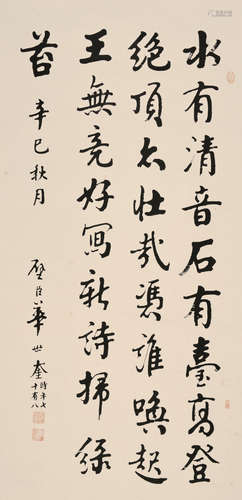 水有清音石有臺高登
絕頂亦壯哉憑誰喚起
王無竟好寫新詩掃綠
苔 辛巳秋月 啟臣華世奎時年七十有八